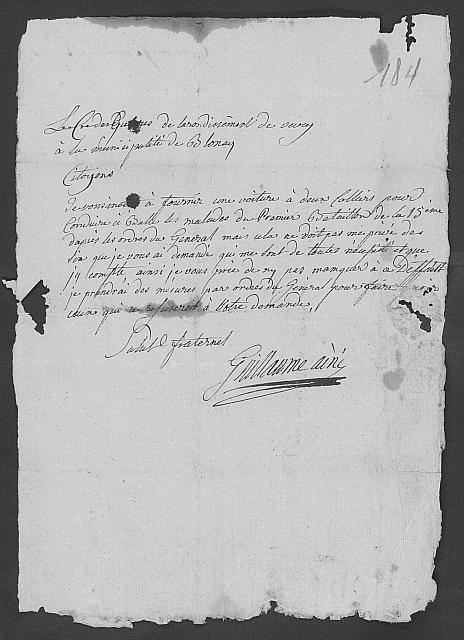 184
Le Cre de de larondissement de vevey
à la municipalité de Blonay
Citoyens
à fournir une voiture à deux Colliers pour
Conduire à Balle les malades du Premier Bataillon de la 15eme
dapres les ordres du General mais cela ne doit pas me privé des
dix que je vous ai demandé qui me sont de toutes nésésité et que
jy compte ainsi je vous prie de ny pas manquer à a Deffaut
je prendrai des mesures par ordres du General pour faire
ceux que se refuseroit à Votre demande,
Salut & fraternet
Guillaume ainé